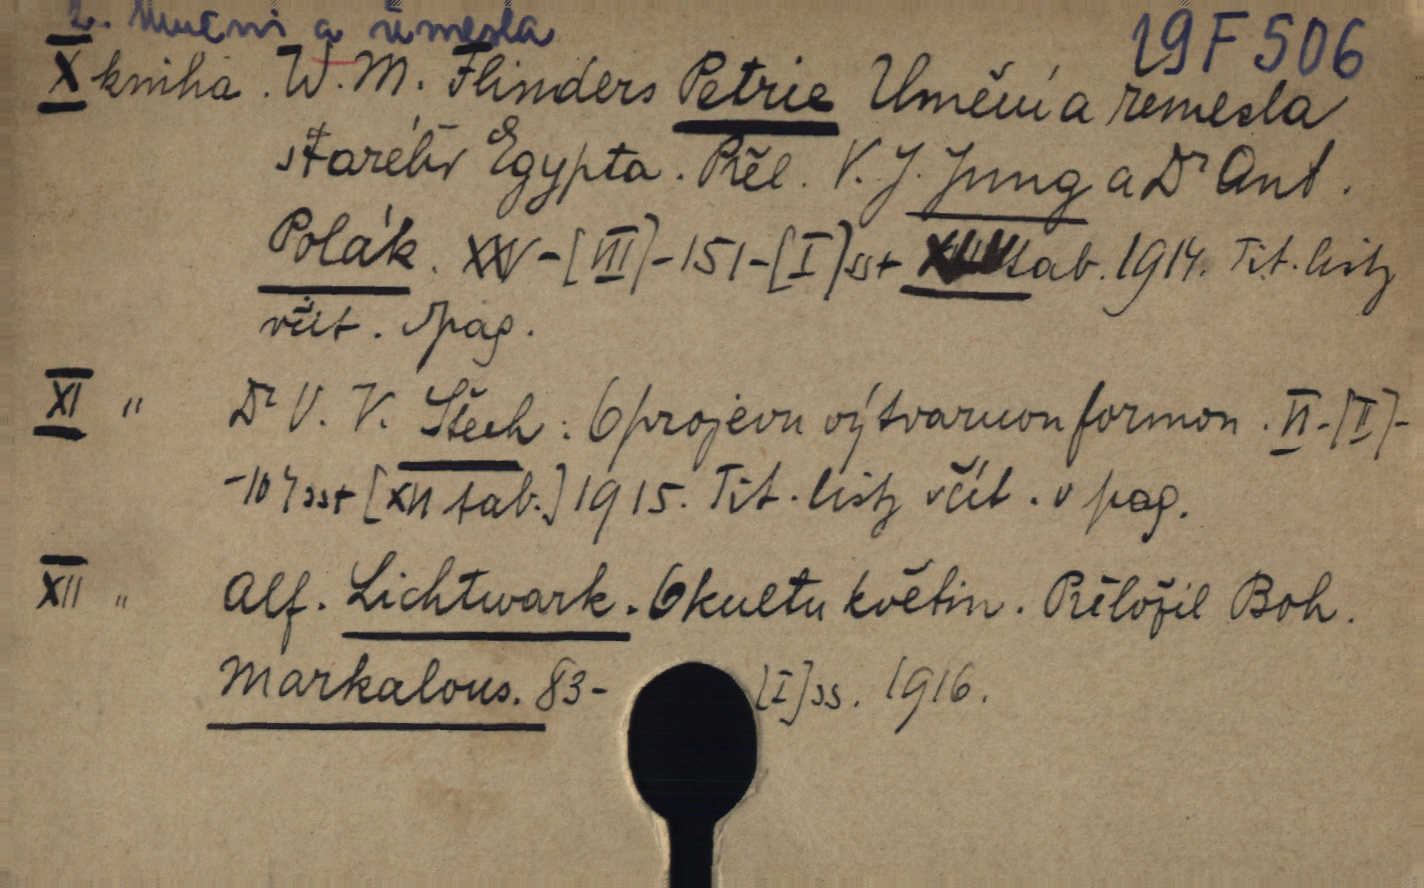 2. Umění a řemesla
19 F 506
X kniha. W. M. Flinders Petrie Umění a řemesla
starého Egypta. Přel. V. J. Jung a Dr Ant.
Polák. XV-[VII]-151-[I] ss + tab. 1914. Tit. listy
včít. v pag.
XI " Dr V. V. Štech: O projevu výtvarnou formou. VI-[II]-
-107 ss + [XII tab.] 1915. Tit. listy včít. v pag.
XII " Alf. Lichtwark. O kultu květin. Přeložil Boh.
Markalous. 83- [I] ss. 1916.